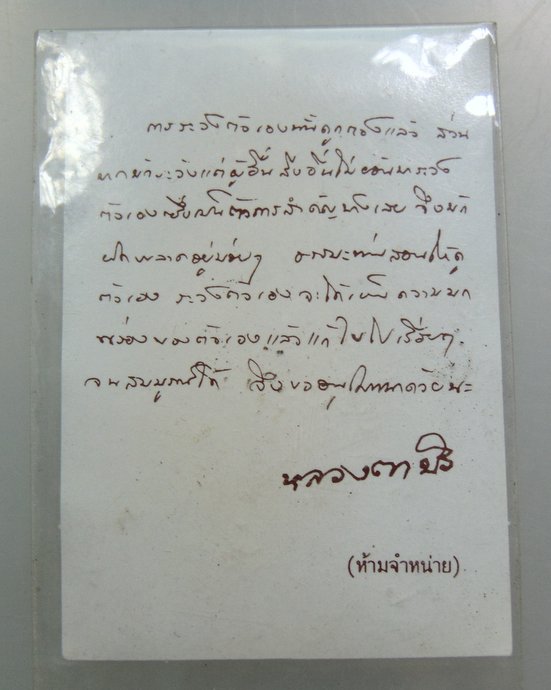 การระวังตัวเองนั้นถูกต้องแล้ว ส่วน
มากมักระวังแต่ผู้อื่น สิ่งอื่นไม่ย้อนมาระวัง
ตัวเองซึ่งเป็นตัวการสำคัญบ้างเลย จึงมัก
ผิดพลาดอยู่บ่อยๆ ธรรมะท่านสอนให้ดู
ตัวเอง ระวังตัวเอง จะได้เห็นความบก
พร่องของตัวเองแล้วแก้ไขไปเรื่อยๆ
จนสมบูรณ์ได้ จึงขออนุโมทนาด้วยนะ
หลวงตาบัว
(ห้ามจำหน่าย)